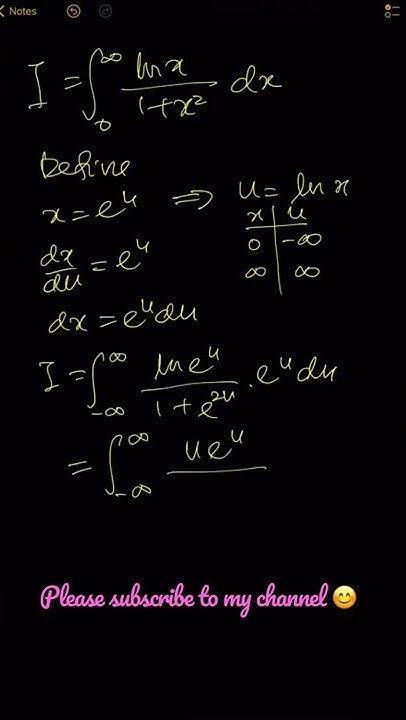 Notes
I = ∫₀^∞ ln x / (1+x²) dx
Define
x = e^u ⇒ u = ln x
x | u
0 | -∞
dx/du = e^u
∞ | ∞
dx = e^u du
I = ∫_{-∞}^{∞} ln e^u / (1 + e^{2u}) . e^u du
= ∫_{-∞}^{∞} u e^u
Please subscribe to my channel 😊